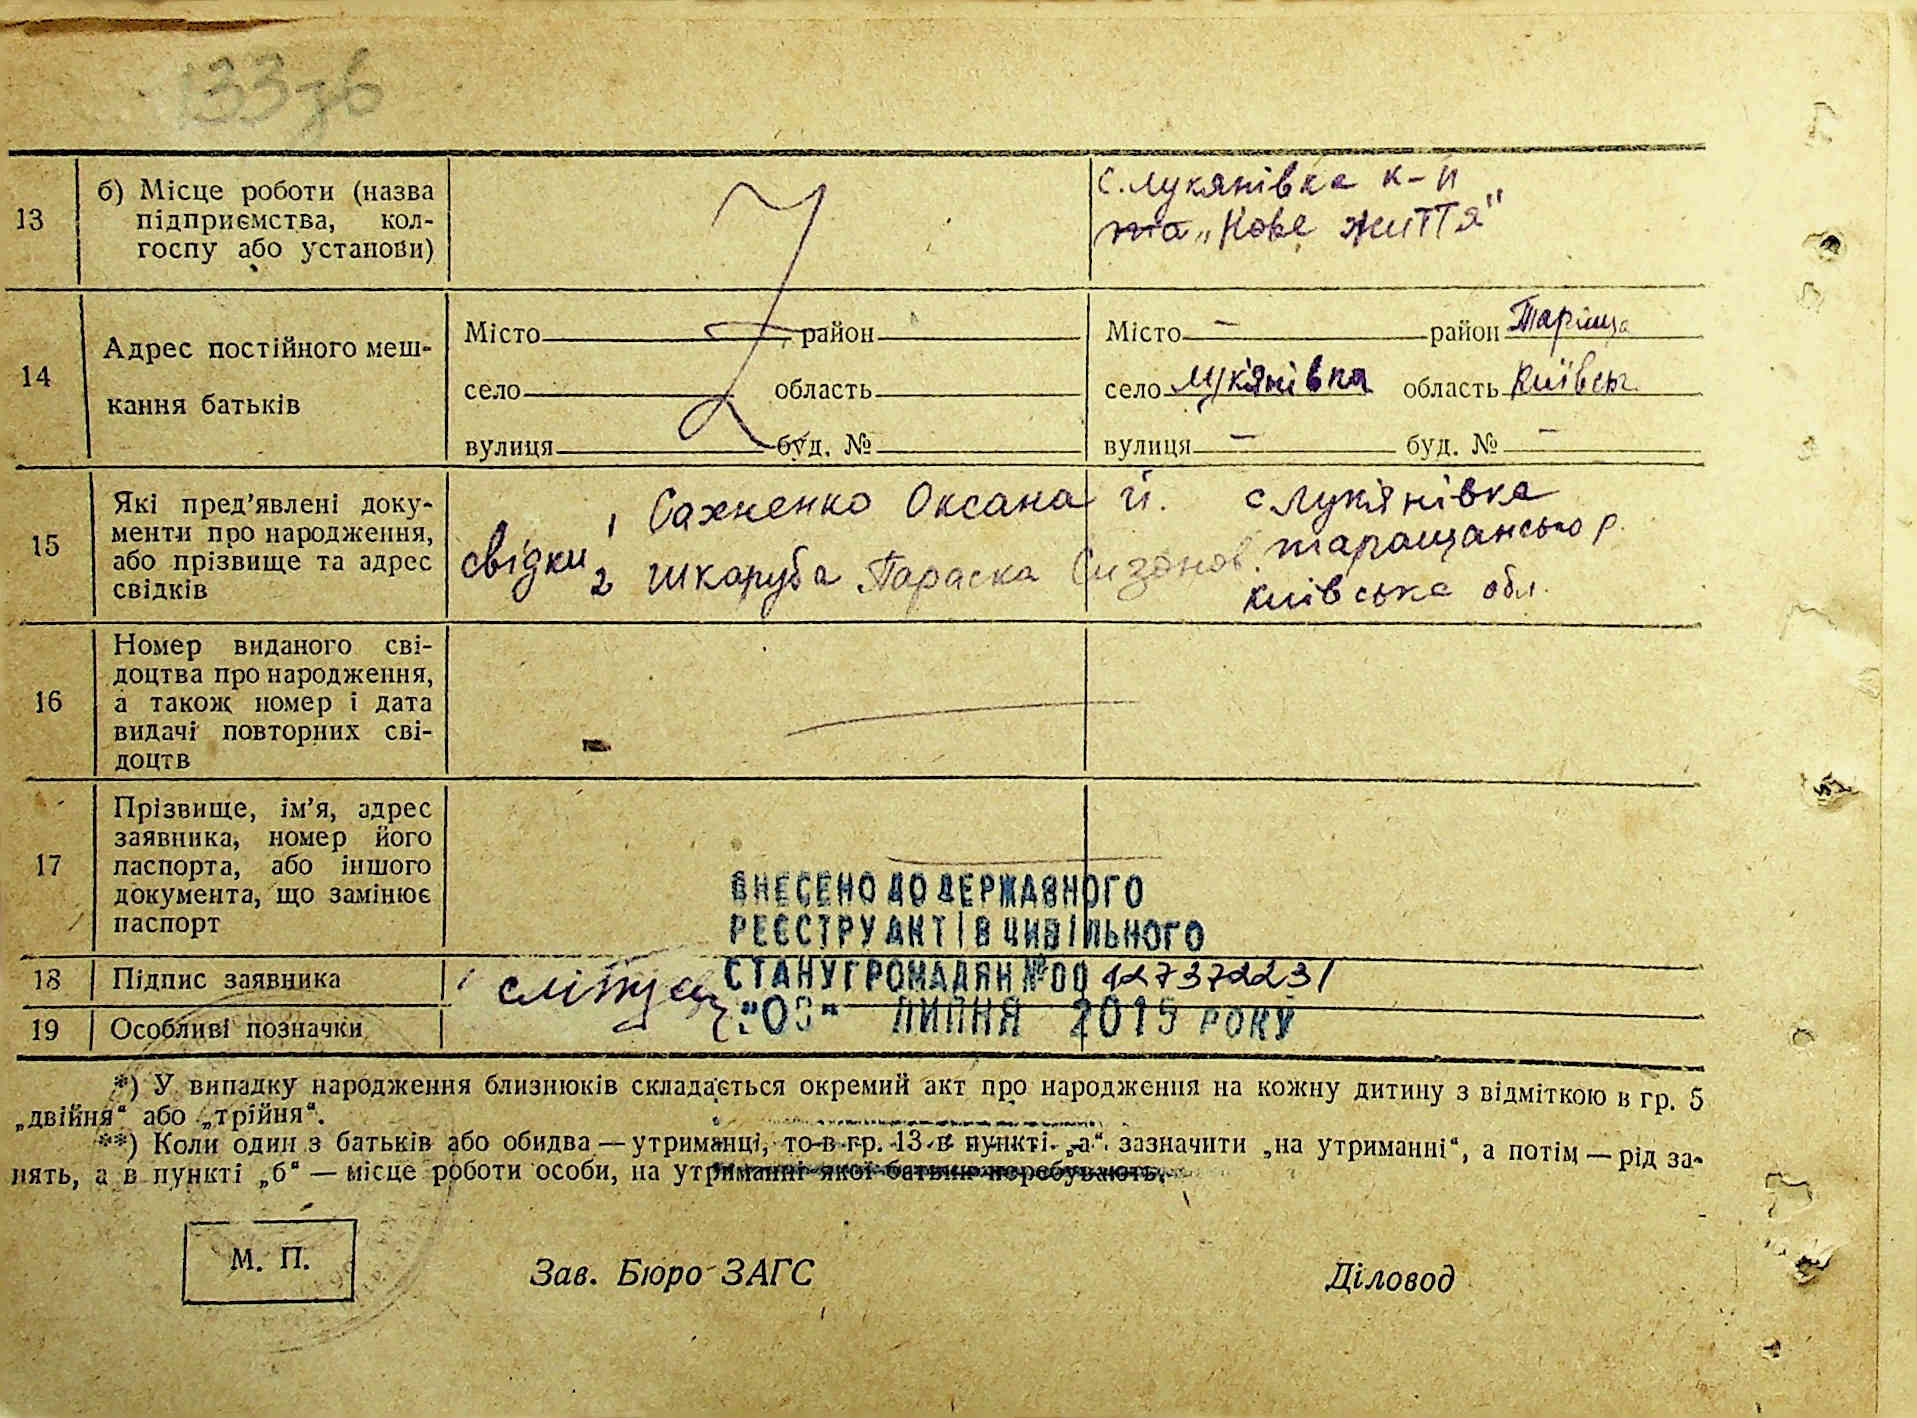 133зв
13
б) Місце роботи (назва
підприємства, кол-
госпу або установи)
с. Лукянівка к-п
та „Нове життя"
14
Адрес постійного меш-
кання батьків
Місто район
село область
вулиця буд. №
Місто — район Таріща
село Лук'янівка область Київськ.
вулиця — буд. № —
15
Які пред'явлені доку-
менти про народження,
або прізвище та адрес
свідків
свідки
1 Сахненко Оксана Й.
2 Шкаруба Параска Сизонов.
с Лук'янівка
таращансько р.
київське обл.
16
Номер виданого сві-
доцтва про народження,
а також номер і дата
видачі повторних сві-
доцтв
17
Прізвище, ім'я, адрес
заявника, номер його
паспорта, або іншого
документа, що замінює
паспорт
ВНЕСЕНО ДО ДЕРЖАВНОГО
РЕЄСТРУ АКТІВ ЦИВІЛЬНОГО
СТАНУ ГРОМАДЯН №00 127372231
ЛИПНЯ 2015 РОКУ
18
Підпис заявника
19
Особливі позначки
*) У випадку народження близнюків складається окремий акт про народження на кожну дитину з відміткою в гр. 5
„двійня" або „трійня".
**) Коли один з батьків або обидва — утриманці, то в гр. 13 в пункті „а" зазначити „на утриманні", а потім — рід за-
нять, а в пункті „б" — місце роботи особи, на утриманні якої батьки перебувають.
М. П.
Зав. Бюро ЗАГС
Діловод